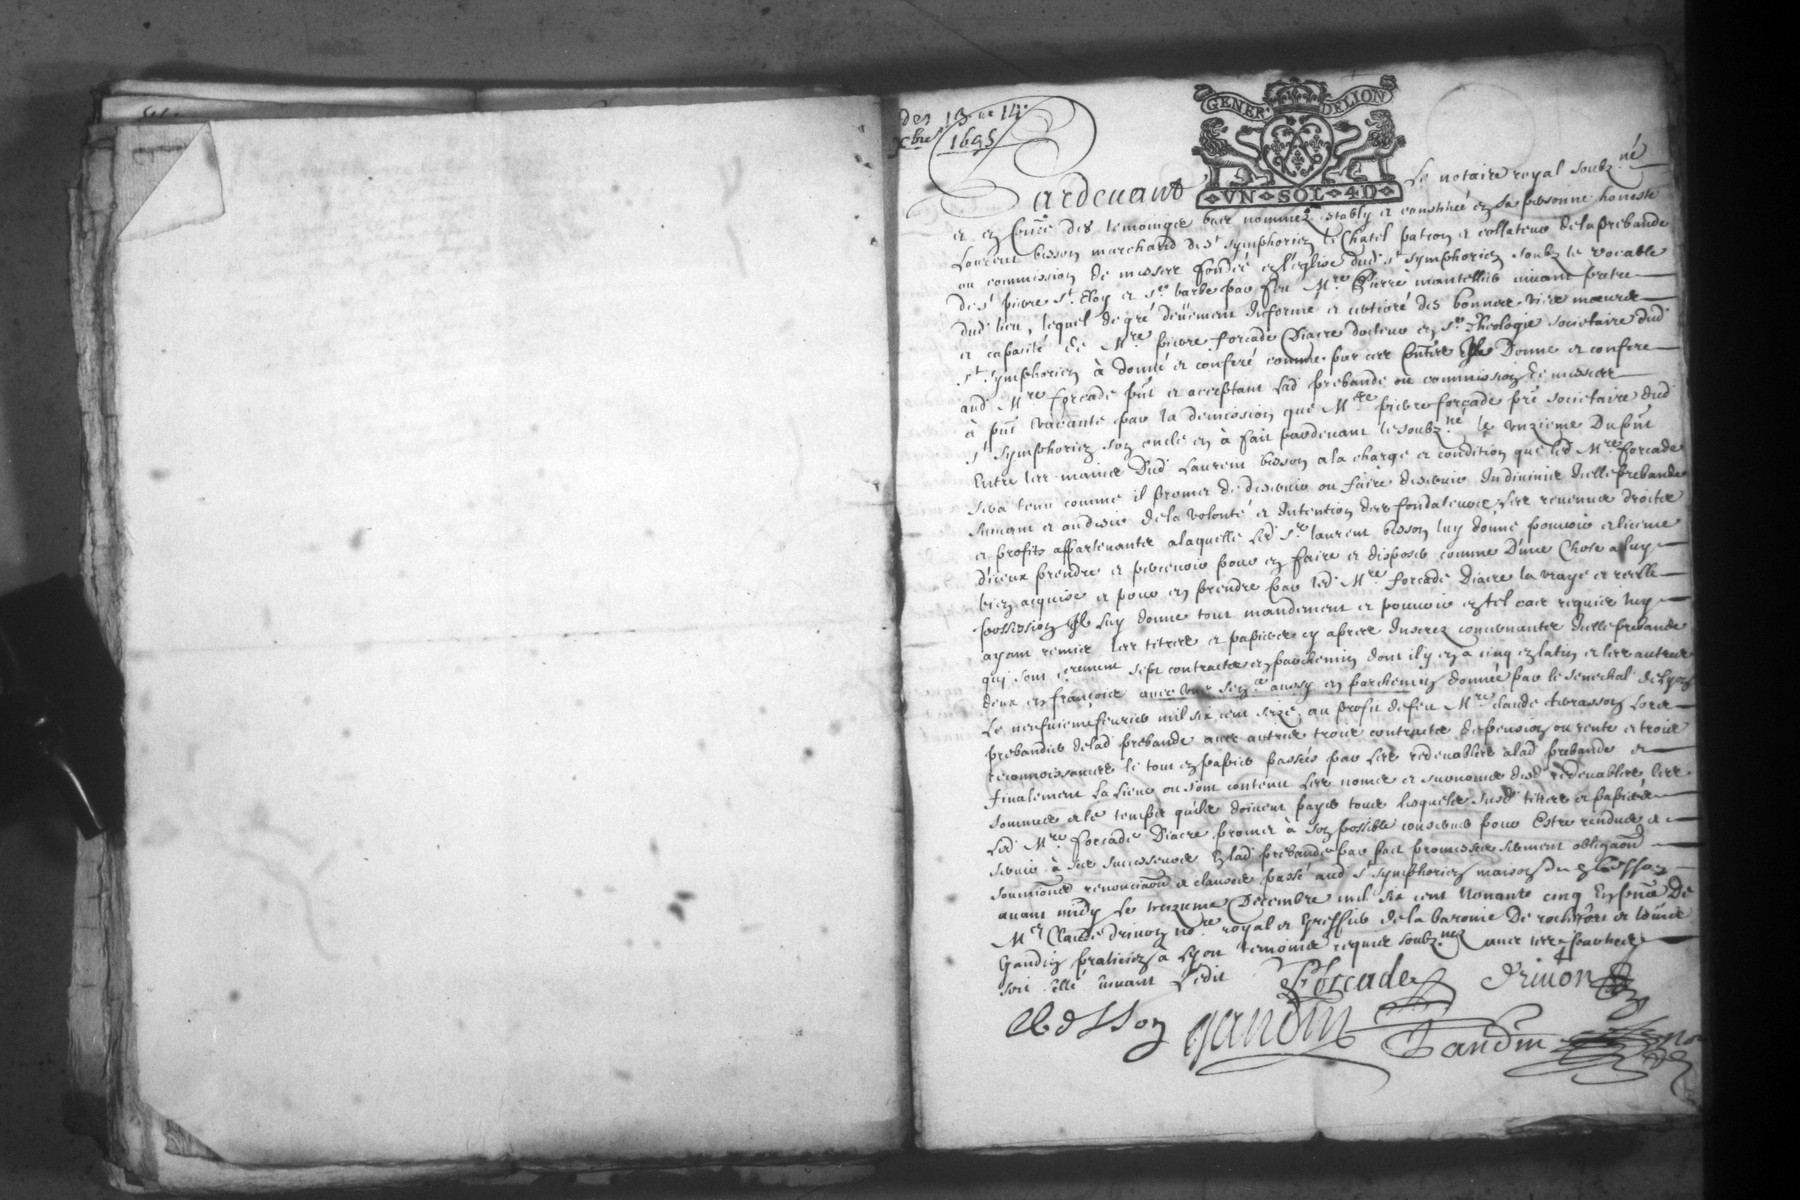 des 13 et 14
Xbre 1695
GENER DE LION
VN SOL 4D
Pardevant Le notaire royal soubz.né
et en p̃nce des temoingtz bas nommez estably et constitué en sa personne honeste
Laurent besson marchand de st symphorien le Chatel patron et collateur de la prebande
ou commission de messes fondée en l'eglise dud st symphorien soubz le vocable
de st pierre st Eloy et ste barbe par feu Mre Pierre mantellier vivant pretre
dud lieu, lequel de gré deüement informé et certioré des bonnes vie et mœurs
et capasité de Mre pierre forcade Diacre docteur en ste Theologie societaire dud
st symphorien à donné et conferé comme par ces p̃ntes Il Donne et confere
aud Mre forcade p̃nt et acceptant lad prebande ou commission de messes
à p̃nt vacante par la demission que Mre pierre forcade p̃re societaire dud
st symphorien son oncle en à fait pardevant le soubz.né le unzieme Du p̃nt
entre les mains dud Laurent besson a la charge et condition que led Mre forcade
sera tenu comme il promet de desservir ou faire desservir le divin dicelle prebande
suivant et au desir de la volonté et intention des fondateurs, les revenus droitz
et profits appartenants a laquelle led sr laurent besson luy donne pouvoir et licence
d'iceux prendre et percevoir pour en faire et disposer comme D'une Chose a luy
bien acquise et pour en prendre par led Mre forcade diacre la vraye et reelle
possession Il luy donne tout mandement et pouvoir en tel cas requis luy
ayant remis les titres et papiers cy apres inserez concernants dicelle prebande
qui sont premierement sept contractes en parchemin dont il y en à cinq en latin et les autres
deux en françois avec une sen.ce aussy en parchemin donnée par le senechal de Lyon
le neufuieme feurier mil six cent seize, au profit de feu Mre claude lors
prebandier de lad prebande avec autres trois contractes de pension ou rente et trois
reconnoissances le tout en papier passés par les redevables a lad prebande et
finalement la lieue ou sont contenu les noms et surnoms desd redevables, les
sommes et le temps quils doivent payer tous lesquels susd titres et papiers
led Mre forcade Diacre promet à son possible conserver pour Estre rendus et
servir à ses successeurs en lad prebande par foy promesses serment obligãon
soumions renonciãon et clauses passé aud st symphorien maison du sr besson
avant midy le treizieme Decembre mil six cent Nonante cinq En p̃nce De
Mre Claude Drivon nore royal et greffier de la baronie De rochefort et
Gandin praticien à Lyon temoins requis soubz.nez avec les parties
soit sellé suivant l'edit
P Forcade Drivon
L besson gandin Gandin no.re